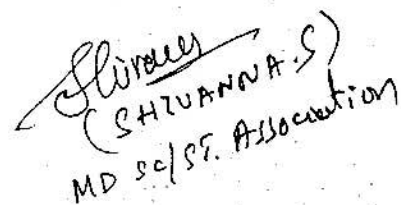 Shivanna
(SHIVANNA.S)
MD SC/ST. Association